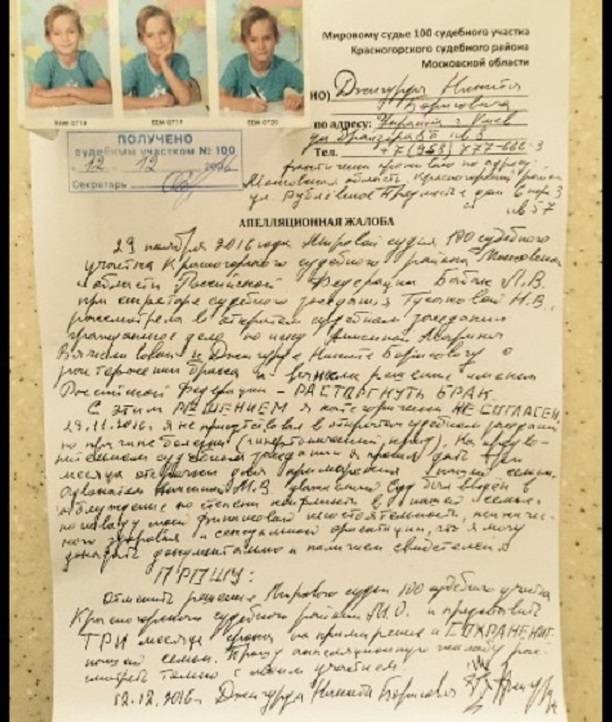 Мировому судье 100 судебного участка
Красногорского судебного района
Московской области
ЕЕМ-0719
ЕЕМ-0720
ПОЛУЧЕНО
судебным участком № 100
12 12 2016
Секретарь
Джигурда Никита
Борисовича
по адресу: Украина г. Киев
Тел.
Московская область, Красногорский район
АПЕЛЛЯЦИОННАЯ ЖАЛОБА
29 ноября 2016 года Мировой судья 100 судебного
участка Красногорского судебного района Московской
области Российской Федерации Л.В.
при секретаре судебного заседания Н.В.
рассмотрела в открытом судебном заседании
гражданское дело по иску Анисиной Марины
Вячеславовны к Джигурде Никите Борисовичу о
расторжении брака и вынесла решение именем
Российской Федерации - РАСТОРГНУТЬ БРАК.
С этим РЕШЕНИЕМ я категорически НЕ СОГЛАСЕН.
29.11.2016г. я не присутствовал в открытом судебном заседании
по причине болезни (гипертонический криз). На
судебном заседании я просил дать три
месяца для примирения и нашей семьи.
Анисиной М.В. уважаемый Суд был введен в
заблуждение по степени конфликта в нашей семье
по поводу моей финансовой несостоятельности, психичес-
кого здоровья и сексуальной ориентации, что я могу
доказать документально и наличием свидетелей
ПРОШУ:
Отменить решение Мирового судьи 100 судебного участка
Красногорского судебного района М.О. и предоставить
ТРИ месяца срока на примирение и СОХРАНЕНИЕ
нашей семьи. Прошу апелляционную жалобу рас-
смотреть только с моим участием
12.12.2016г. Джигурда Никита Борисович